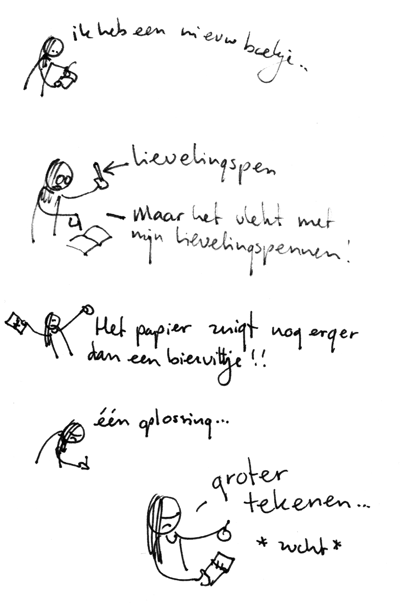 ik heb een nieuw boekje..
lievelingspen
Maar het vlekt met
mijn lievelingspennen!
Het papier zuigt nog erger
dan een bierviltje!!
één oplossing...
groter
tekenen...
*zucht*